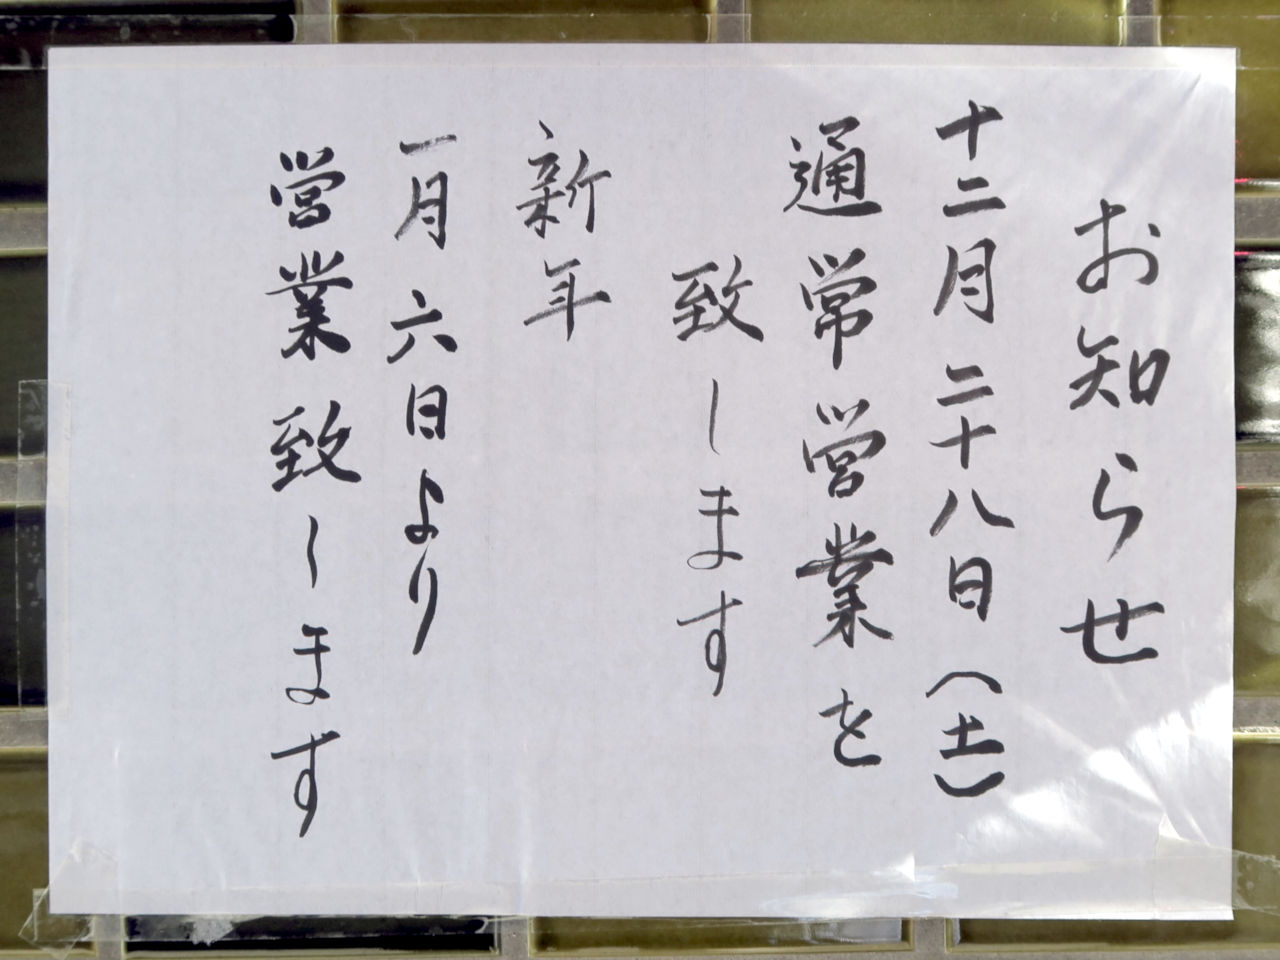 お知らせ
十二月二十八日(土)
通常営業を
致します
新年
一月六日より
営業致します